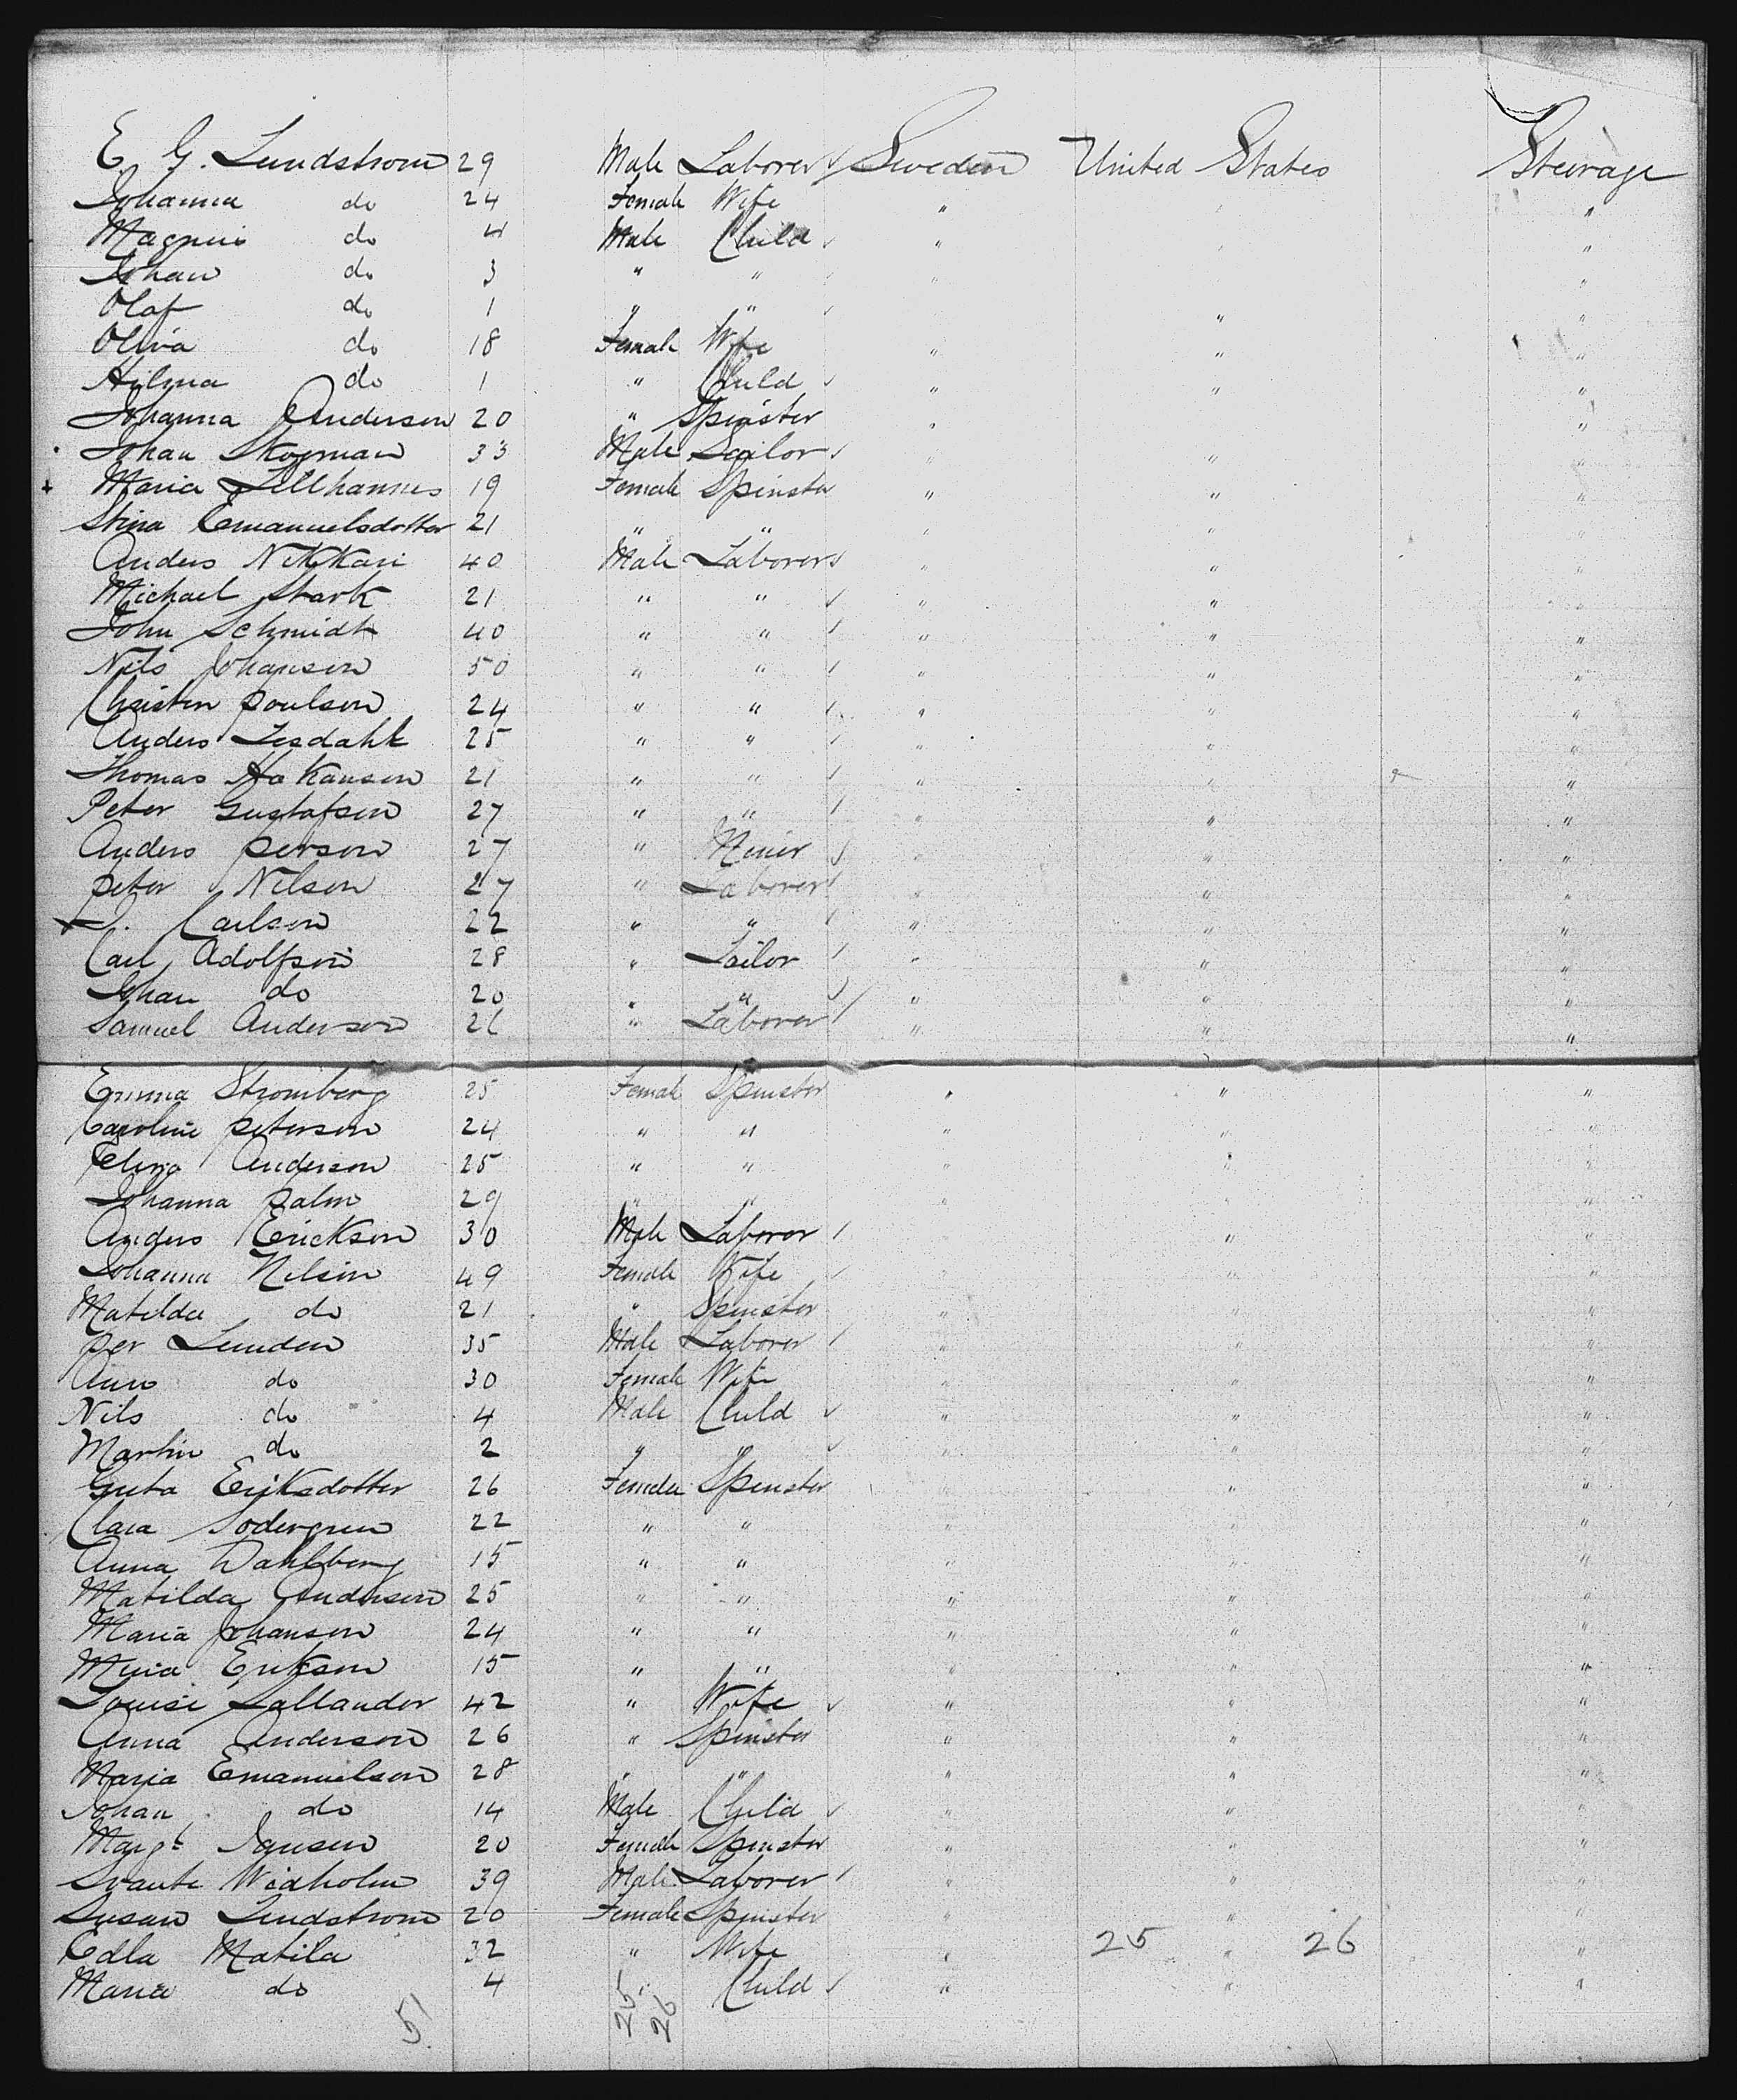 E. G. Lundstrom 29 Male Laborer Sweden United States Steerage
Johanna do 24 Female Wife " " "
Magnus do 4 Male Child " " "
Johan do 3 " " " "
Olaf do 1 " " " "
Oliva do 18 Female Wife " " "
Hilma do 1 " Child " " "
Johanna Anderson 20 " Spinster " "
Johan Skogman 33 Male Sailor " " "
Maria Lillhannus 19 Female Spinster " " "
Stina Emanuelsdotter 21 " " " " "
Anders Nikkari 40 Male Laborer " " "
Michael Stark 21 " " " " "
John Schmidt 40 " " " " "
Nils Johanson 50 " " " " "
Christen Poulson 24 " " " " "
Anders Lesdahl 25 " " " " "
Thomas Hakanson 21 " " " " "
Peter Gustafson 27 " " " " "
Anders Person 27 " Miner " " "
Peter Nilson 27 " Laborer " " "
Carlson 22 " " " " "
Carl Adolfson 28 " Sailor " " "
Johan do 20 " " " " "
Samuel Anderson 26 " Laborer " " "
Emma Stromberg 25 Female Spinster " " "
Caroline Peterson 24 " " " " "
Elina Anderson 25 " " " " "
Johanna Palm 29 " " " " "
Anders Erickson 30 Male Laborer " "
Johanna Nilson 49 Female Wife " "
Matilda do 21 " Spinster " " "
Per Lunden 35 Male Laborer " " "
Ann do 30 Female Wife " " "
Nils do 4 Male Child " " "
Martin do 2 " " " " "
Greta Eriksdotter 26 Female Spinster " " "
Clara Sodergren 22 " " " " "
Anna Dahlberg 15 " " " " "
Matilda Anderson 25 " " " " "
Maria Johanson 24 " " " " "
Maria Erikson 15 " " " " "
Louise Sallander 42 " Wife " " "
Anna Anderson 26 " Spinster " " "
Maria Emanuelson 28 " " " " "
Johan do 14 Male Child " " "
Margt Jansen 20 Female Spinster " " "
Svante Widholm 39 Male Laborer " " "
Susan Lindstrom 20 Female Spinster " " "
Edla Matila 32 " Wife " 25 " 26 "
Maria do 4 " Child " " "
51 25 26